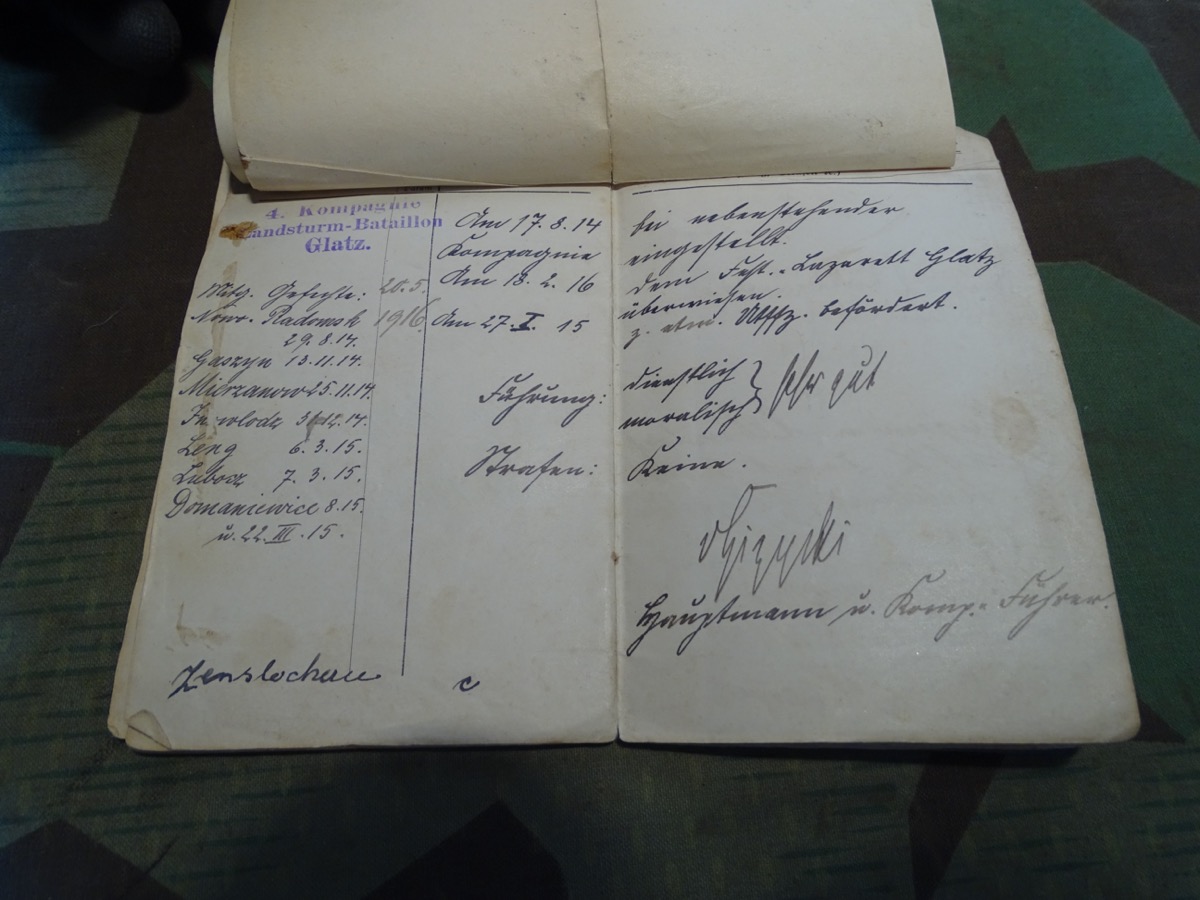 4. Kompagnie
Landsturm-Bataillon
Glatz.
Mitg. Gefechte: 20.5.
Nowo-Radomsk 1916
29.8.14.
Gaszyn 13.11.14.
Mierzanow 25.11.14.
Inowlodz 12.14.
Leng 6.3.15.
Lubocz 7.3.15.
Domaniewice 8.15.
u. 22.III.15.
Zenslochau
Am 17.8.14 bei nebenstehender
Kompagnie eingestellt.
Am 18.2.16 dem Fest.-Lazarett Glatz
überwiesen.
Am 27.I.15 z. Uffz. befördert.
Führung: dienstlich } sehr gut
moralisch
Strafen: Keine.
Hauptmann u. Komp.-Führer.
c